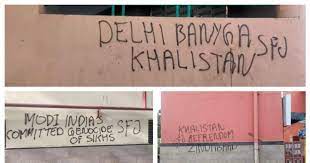 DELHI BANYGA SFJ
KHALISTAN
MODI INDIA'S
COMMITTED GENOCIDE SFJ
OF SIKHS
KHALISTAN
REFRENDOM
ZINDABAAD